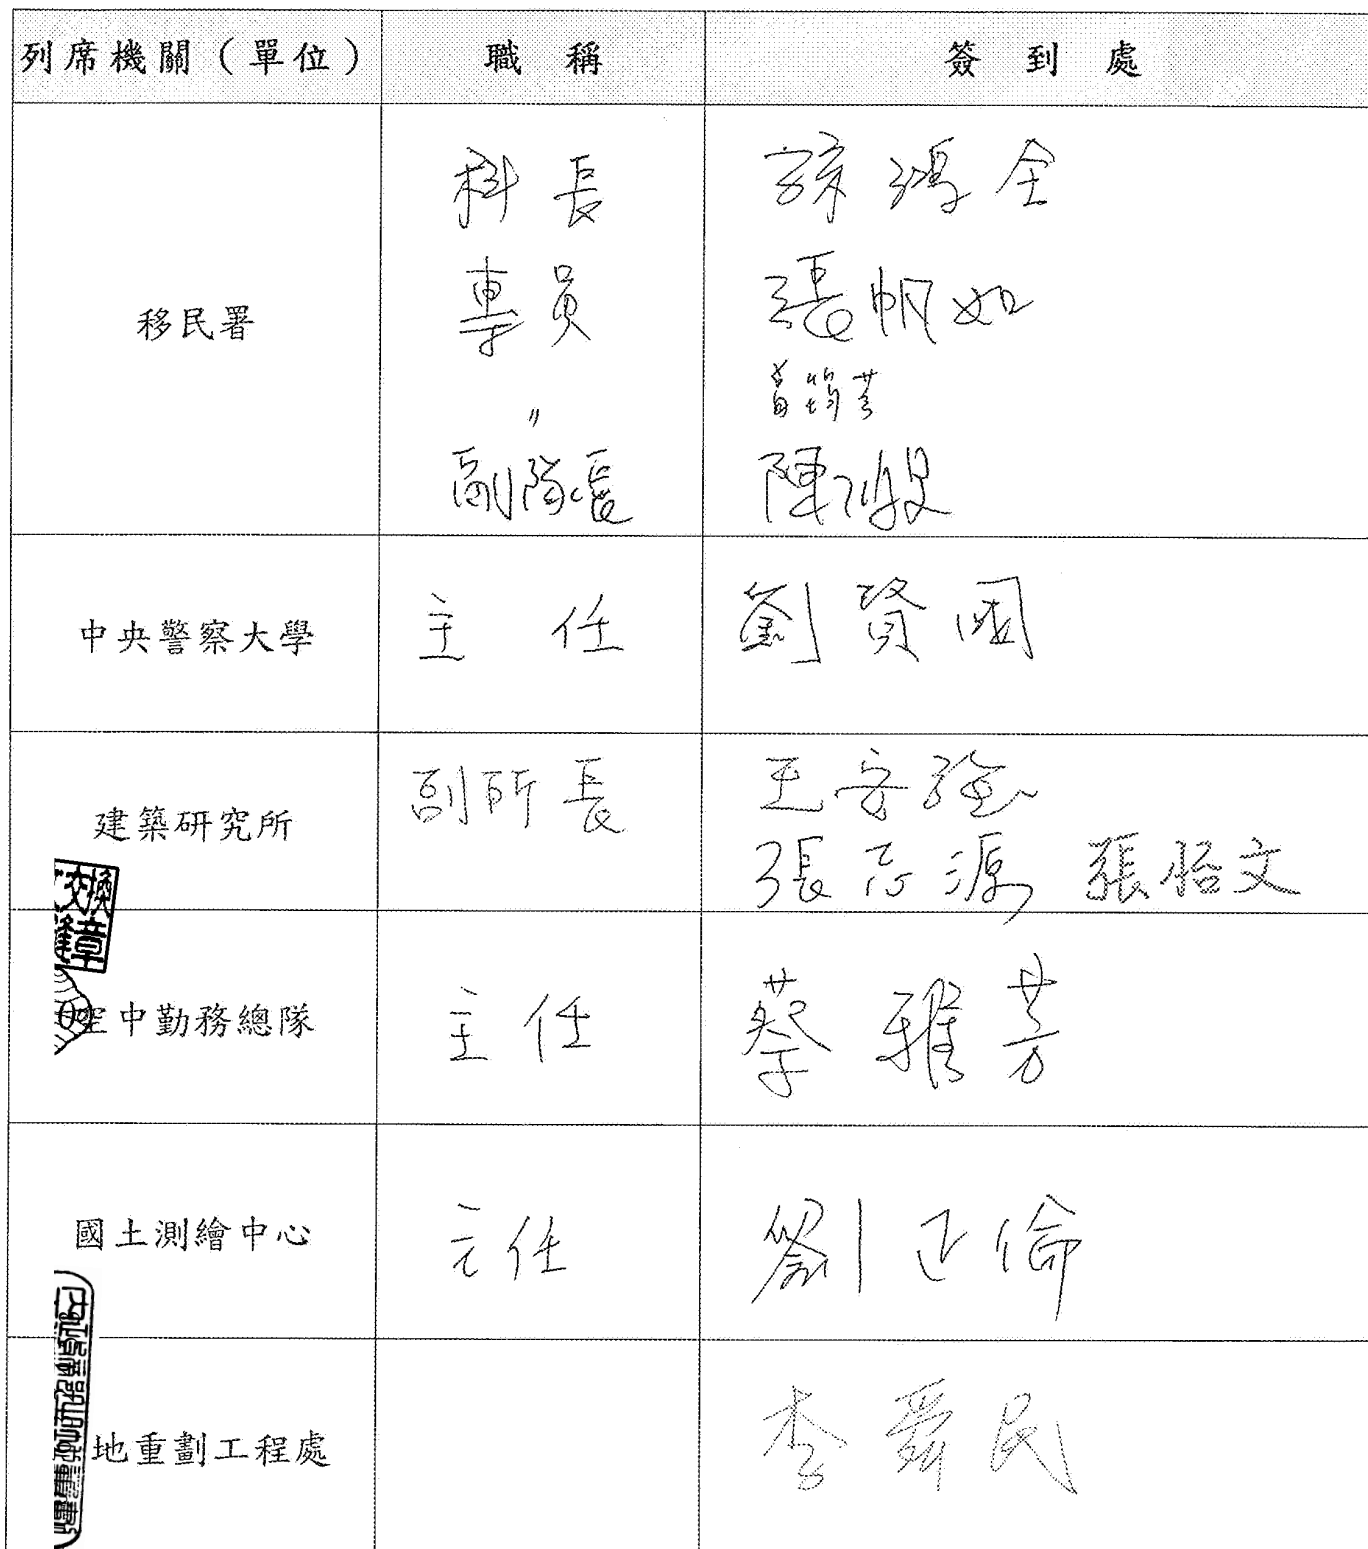 列席機關（單位） 職稱 簽到處
移民署
科長 諒鴻全
專員 張帆如
〃
副隊長 陳
中央警察大學 主任 劉賢國
建築研究所 副所長 王安強
張志源 張怡文
交換章
空中勤務總隊 主任 蔡雅芳
國土測繪中心 主任 劉正倫
地重劃工程處 李舜民